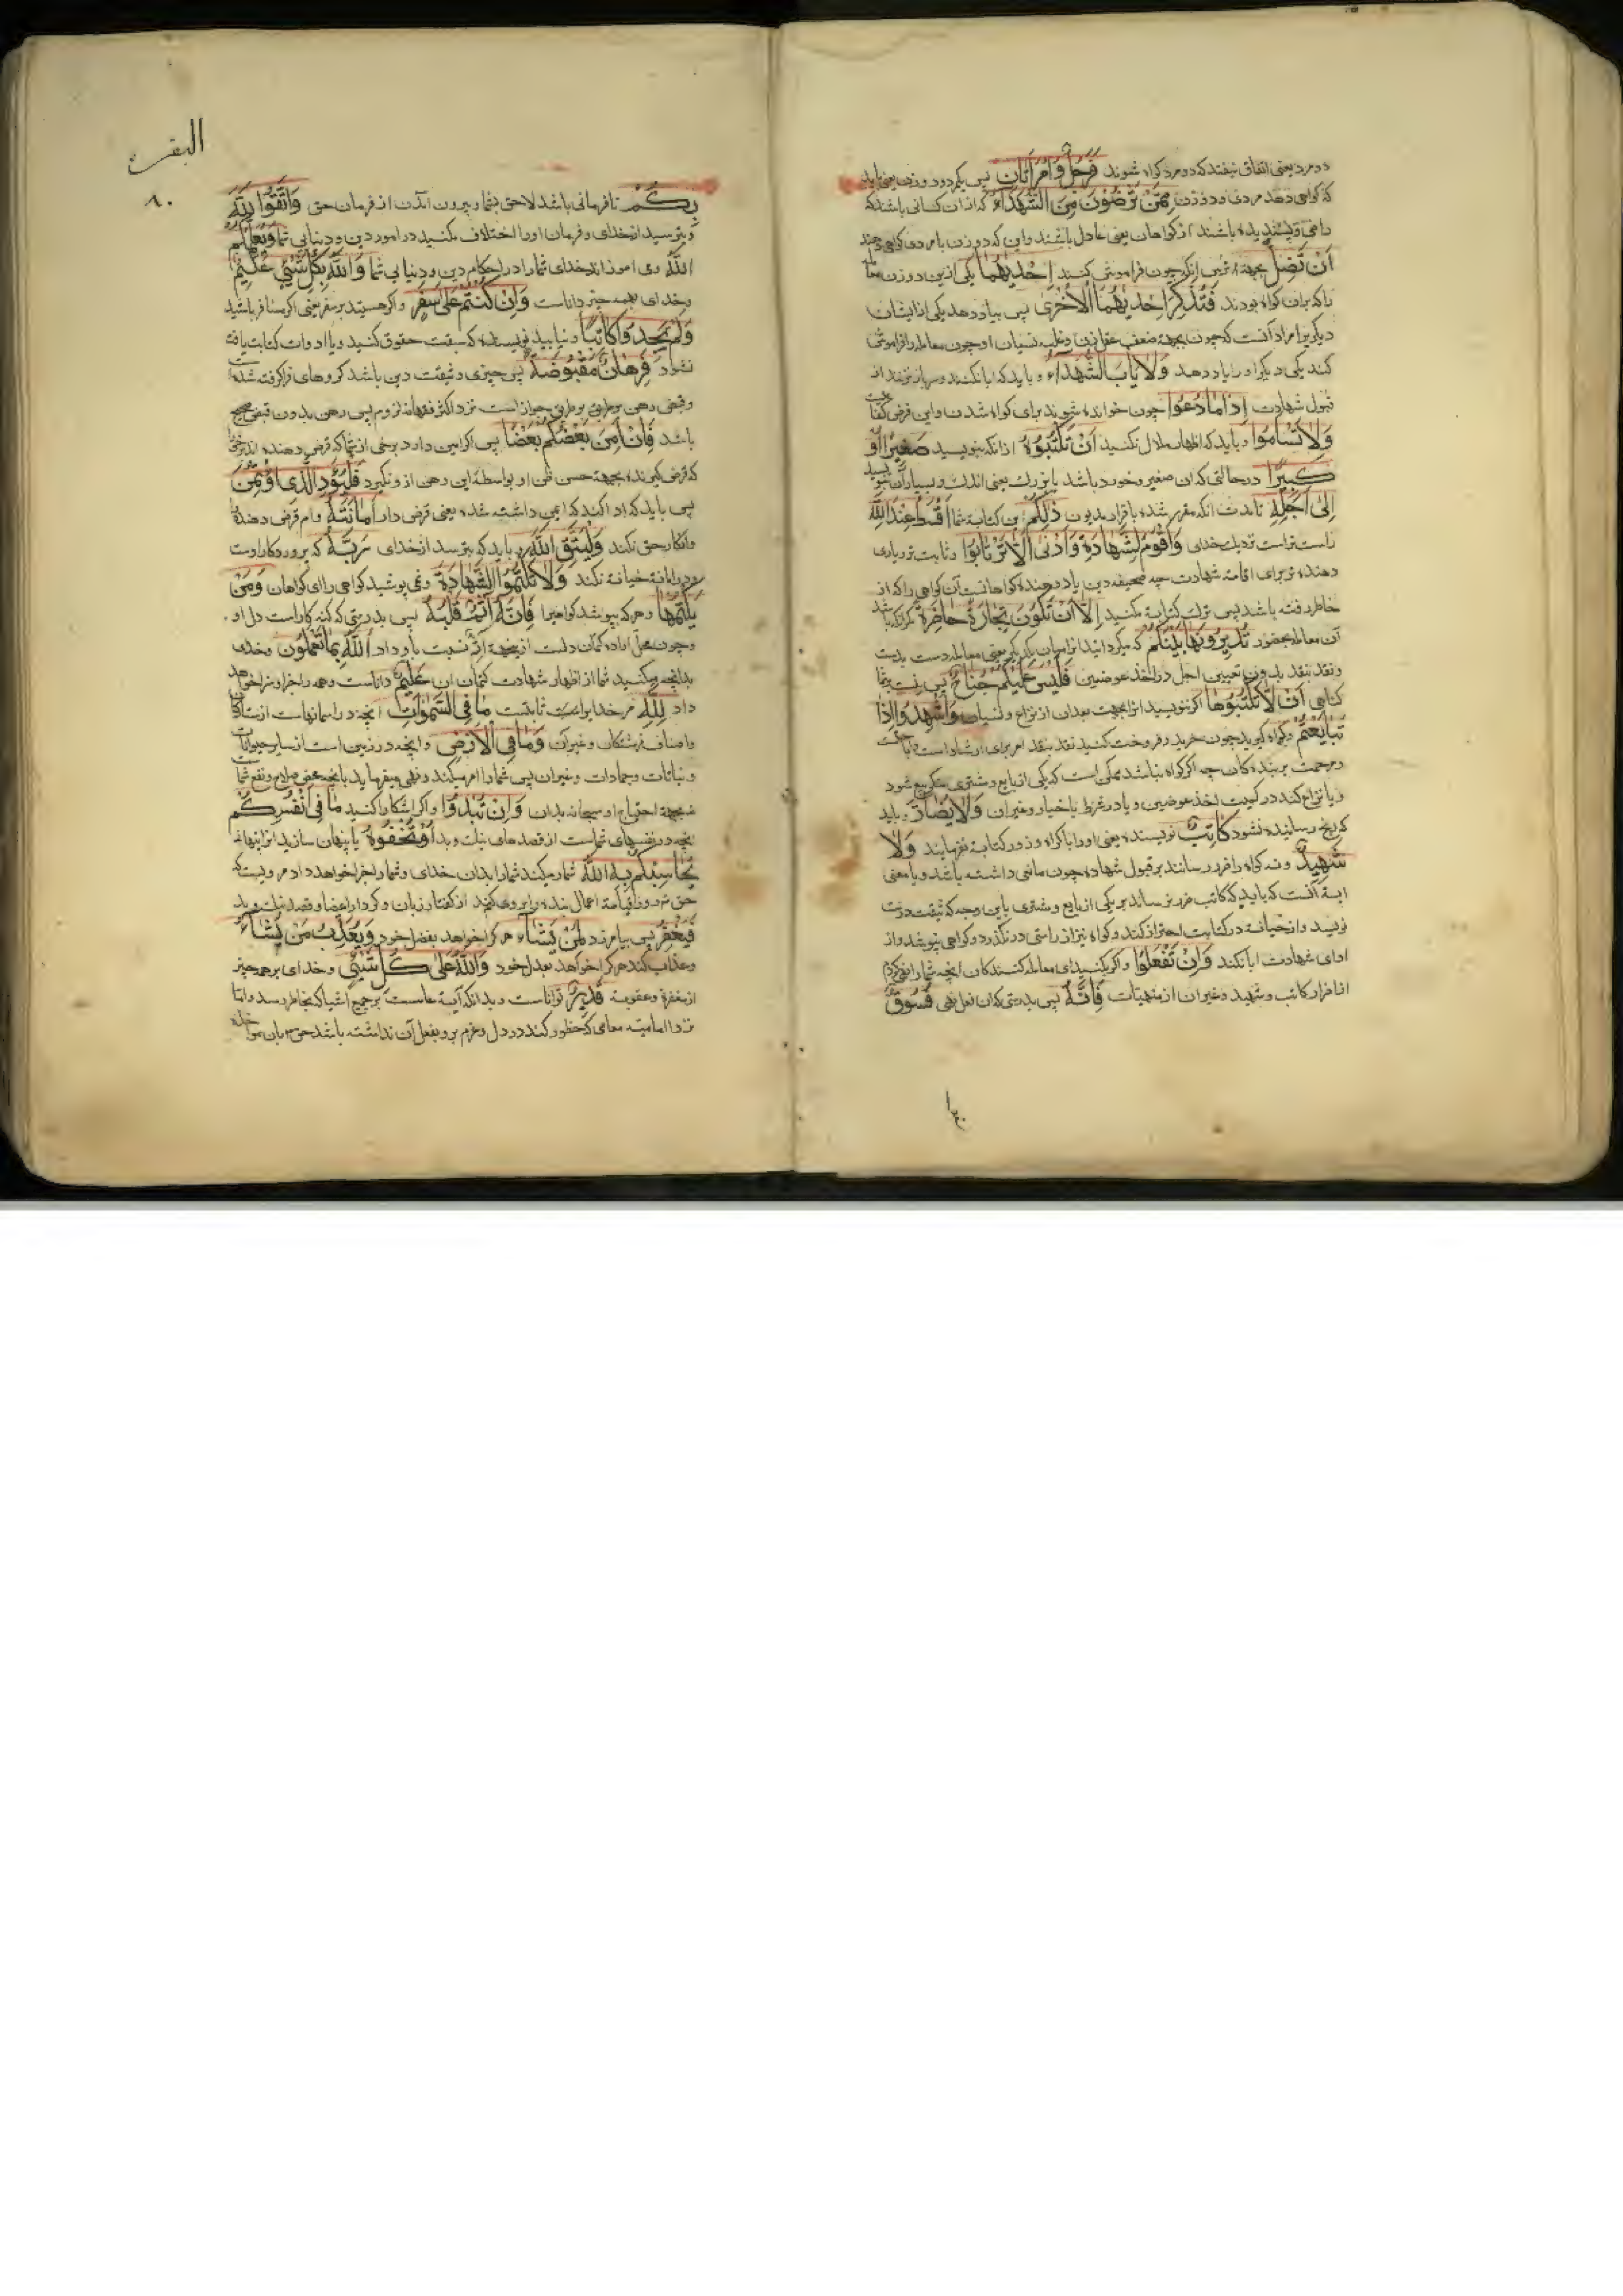 دو مرد یعنی اتفاق نیفتد که دو مرد کواه شوند فَرَجُلٌ وَامْرَأَتَانِ پس یکمرد و دو زن یعنی باید
که کواهی دهد مردی و دو زن مِمَّنْ تَرْضَوْنَ مِنَ الشُّهَدَاءِ که از ان کسانی باشند که
راضی و پسندیده باشند از کواهان یعنی عادل باشند و این که دو زن با مردی کواهی دهند
أَنْ تَضِلَّ جهة انست که چون فراموش کنند إِحْدَيٰهُمَا یکی ازین دو زن
که بدان کواه بودند فَتُذَكِّرَ إِحْدَيٰهُمَا الْأُخْرَىٰ پس بیاد دهد یکی از ایشان
دیکریرا مراد آنست که چون بجهة ضعف عقل زن و غلبه نسیان او چون معامله را فراموش
کند یکی دیکر او را یاد دهد وَلَا يَأْبَ الشُّهَدَاءُ و باید که ابا نکنند و سر باز نزنند از
قبول شهادت إِذَا مَا دُعُوا چون خوانده شوند برای کواه شدن و این فرض
وَلَا تَسْأَمُوا و باید که اظهار ملال نکنید أَنْ تَكْتُبُوهُ از انکه بنویسید صَغِيرًا أَوْ
كَبِيرًا در حالتی که ان صغیر و خورد باشد یا بزرک یعنی اندک و بسیار آن
إِلَىٰ أَجَلِهِ تا مدت انکه مقرر شده باقرار مدیون ذَٰلِكُمْ این کتابة شما أَقْسَطُ عِنْدَ اللَّهِ
راست تر است نزدیک خدای وَأَقْوَمُ لِلشَّهَادَةِ وَأَدْنَىٰ أَلَّا تَرْتَابُوا و ثابت تر و یاری
دهنده تر برای اقامة شهادت چه صحیفه دین یاد دهنده کواهانست آن کواهی را که از
خاطر رفته باشد پس ترک کتابة مکنید إِلَّا أَنْ تَكُونَ تِجَارَةً حَاضِرَةً مکر انکه باشد
آن معامله بحضور تُدِيرُونَهَا بَيْنَكُمْ که میکردانید انرا میان یکدیکر یعنی معامله دست بدست
و نقد بنقد بدون تعیین اجل در اخذ عوضین فَلَيْسَ عَلَيْكُمْ جُنَاحٌ پس نیست بر شما
کناهی أَلَّا تَكْتُبُوهَا اکر ننویسید انرا بجهت بعد ان از نزاع و نسیان وَأَشْهِدُوا إِذَا
تَبَايَعْتُمْ و کواه کیرید چون خرید و فروخت کنید نقد بنقد امر برای ارشاد است
و مرحمت بر بندکان چه اکر کواه نباشد ممکن است که یکی از بایع و مشتری منکر بیع شود
و یا نزاع کند در کمیت اخذ عوضین و یا در شرط یا خیار و غیران وَلَا يُضَارَّ و باید
که رنج رسانیده نشود كَاتِبٌ نویسنده یعنی او را باکراه و زور کتابة نفرمایند وَلَا
شَهِيدٌ و نه کواه را ضرر رسانند بر قبول شهادة چون مانعی داشته باشد و یا معنی
ایة آنست که باید که کاتب ضرر نرساند بر یکی از بایع و مشتری باین وجه که
نویسد و از خیانة در کتابت احتراز کند و کواه نیز از راستی در نکذرد و کواهی نپوشد و از
ادای شهادت ابا نکند وَإِنْ تَفْعَلُوا و اکر بکنید ای معامله کنندکان انچه شما را نهی کردم
از اضرار کاتب و شهید و غیر ان از منهیات فَإِنَّهُ پس بدرستی که ان فعل نهی فُسُوقٌ
البقره
۸۰
بِكُمْ نافرمانی باشد لاحق بشما و بیرون آمدن از فرمان حق وَاتَّقُوا اللَّهَ
و بترسید از خدای و فرمان او را اختلاف مکنید در امور دین و دنیایی شما وَيُعَلِّمُكُمُ
اللَّهُ و می اموزاند خدای شما را در احکام دین و دنیایی شما وَاللَّهُ بِكُلِّ شَيْءٍ عَلِيمٌ
و خدای بهمه چیز داناست وَإِنْ كُنْتُمْ عَلَىٰ سَفَرٍ و اکر هستید بر سفر یعنی اکر مسافر باشید
وَلَمْ تَجِدُوا كَاتِبًا و نیابید نویسنده که ثبت حقوق کنید و یا ادوات کتابت یافته
نشود فَرِهَانٌ مَقْبُوضَةٌ پس چیزی وثیقت دین باشد کروهای فرا کرفته شده
باشد فَإِنْ أَمِنَ بَعْضُكُمْ بَعْضًا پس اکر امین دارد برخی از شما که قرض دهنده اند برخی
که قرض کیرنده بجهة حسن ظن او بواسطه این رهن ازو نکیرد فَلْيُؤَدِّ الَّذِي اؤْتُمِنَ
پس باید که ادا کند که امین داشته شده یعنی قرض دار أَمَانَتَهُ وام قرض دهنده
و انکار حق نکند وَلْيَتَّقِ اللَّهَ و باید که بترسد از خدای رَبَّهُ که پروردکار اوست
و در امانة خیانة نکند وَلَا تَكْتُمُوا الشَّهَادَةَ و نمی پوشید کواهی را ای کواهان وَمَنْ
يَكْتُمْهَا و هر که بپوشد کواهیرا فَإِنَّهُ آثِمٌ قَلْبُهُ پس بدرستی که کنه کار است دل او
و چون محل اراده کتمان دلست ازینجهة اثم نسبت باو داد اللَّهُ بِمَا تَعْمَلُونَ و خدی
بدانچه میکنید شما از اظهار شهادت کتمان ان عَلِيمٌ داناست و همه را جزا و سزا خواهد
داد لِلَّهِ مر خدایراست ثابتست مَا فِي السَّمَوَاتِ انچه در اسمانهاست از
و اصناف فرشتکان و غیر آن وَمَا فِي الْأَرْضِ و انچه در زمین است از سایر حیوانات
و نباتات و جمادات و غیر ان پس شما را امر میکند و نهی میفرماید بانچه محض صلاح و نفع شما
نه بجهة احتیاج او سبحانه بدان وَإِنْ تُبْدُوا و اکر اشکارا کنید مَا فِي أَنْفُسِكُمْ
انچه در نفسهای شماست از قصدهای نیک و بد أَوْ تُخْفُوهُ یا پنهان سازید انرا
يُحَاسِبْكُمْ بِهِ اللَّهُ شمار میکند شما را بدان خدای و شما را جزا خواهد داد
حق در روز قیامة اعمال بنده را بر وی از کفتار زبان و کردار اعضا و قصد نیک و بد
فَيَغْفِرُ پس بیامرزد لِمَنْ يَشَاءُ هر کرا خواهد بفضل خود وَيُعَذِّبُ مَنْ يَشَاءُ
و عذاب کند هر کرا خواهد بعدل خود وَاللَّهُ عَلَىٰ كُلِّ شَيْءٍ و خدای بر همه چیز
از مغفرة و عقوبة قَدِيرٌ تواناست و بدانکه آیة عامست بر جمیع اشیا که بخاطر رسد و اما
نزد امامیه معاصی که خطور کند در دل و عزم بر و بفعل آن نداشته باشد حق بان